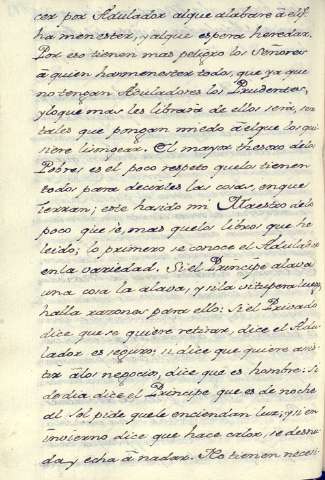 cer por Adulador alque alabare â elq.e
ha menester, y alque espera heredar.
Por eso tienen mas peligro los Señores
â quien han menester todos, que ya que
no tengan Aduladores los Prudentes,
y loque mas les libraria de ellos seria, ser
tales que pongan miedo âelque los qui
siere lisongear. El mayor thesoro delos
Pobres es el poco respeto queles tienen
todos para decirles las cosas, en que
ierran; este ha sido mi Maestro delo
poco que sé, mas quelos libros que he
leido; lo primero se conoce el Adulador
enla variedad. Si el Principe alava
una cosa la alava, y si la vitupera luego
halla razones para ello: Si el Privado
dice que se quiere retirar, dice el Adu
lador es seguro; si dice que quiere asis
tir âlos negocios, dice que es hombre: Si
de dia dice el Principe que es de noche
al Sol pide quele enciendan luz; y si en
invierno dice que hace calor, se desnu
da y echa â nadar. No tienen necesi